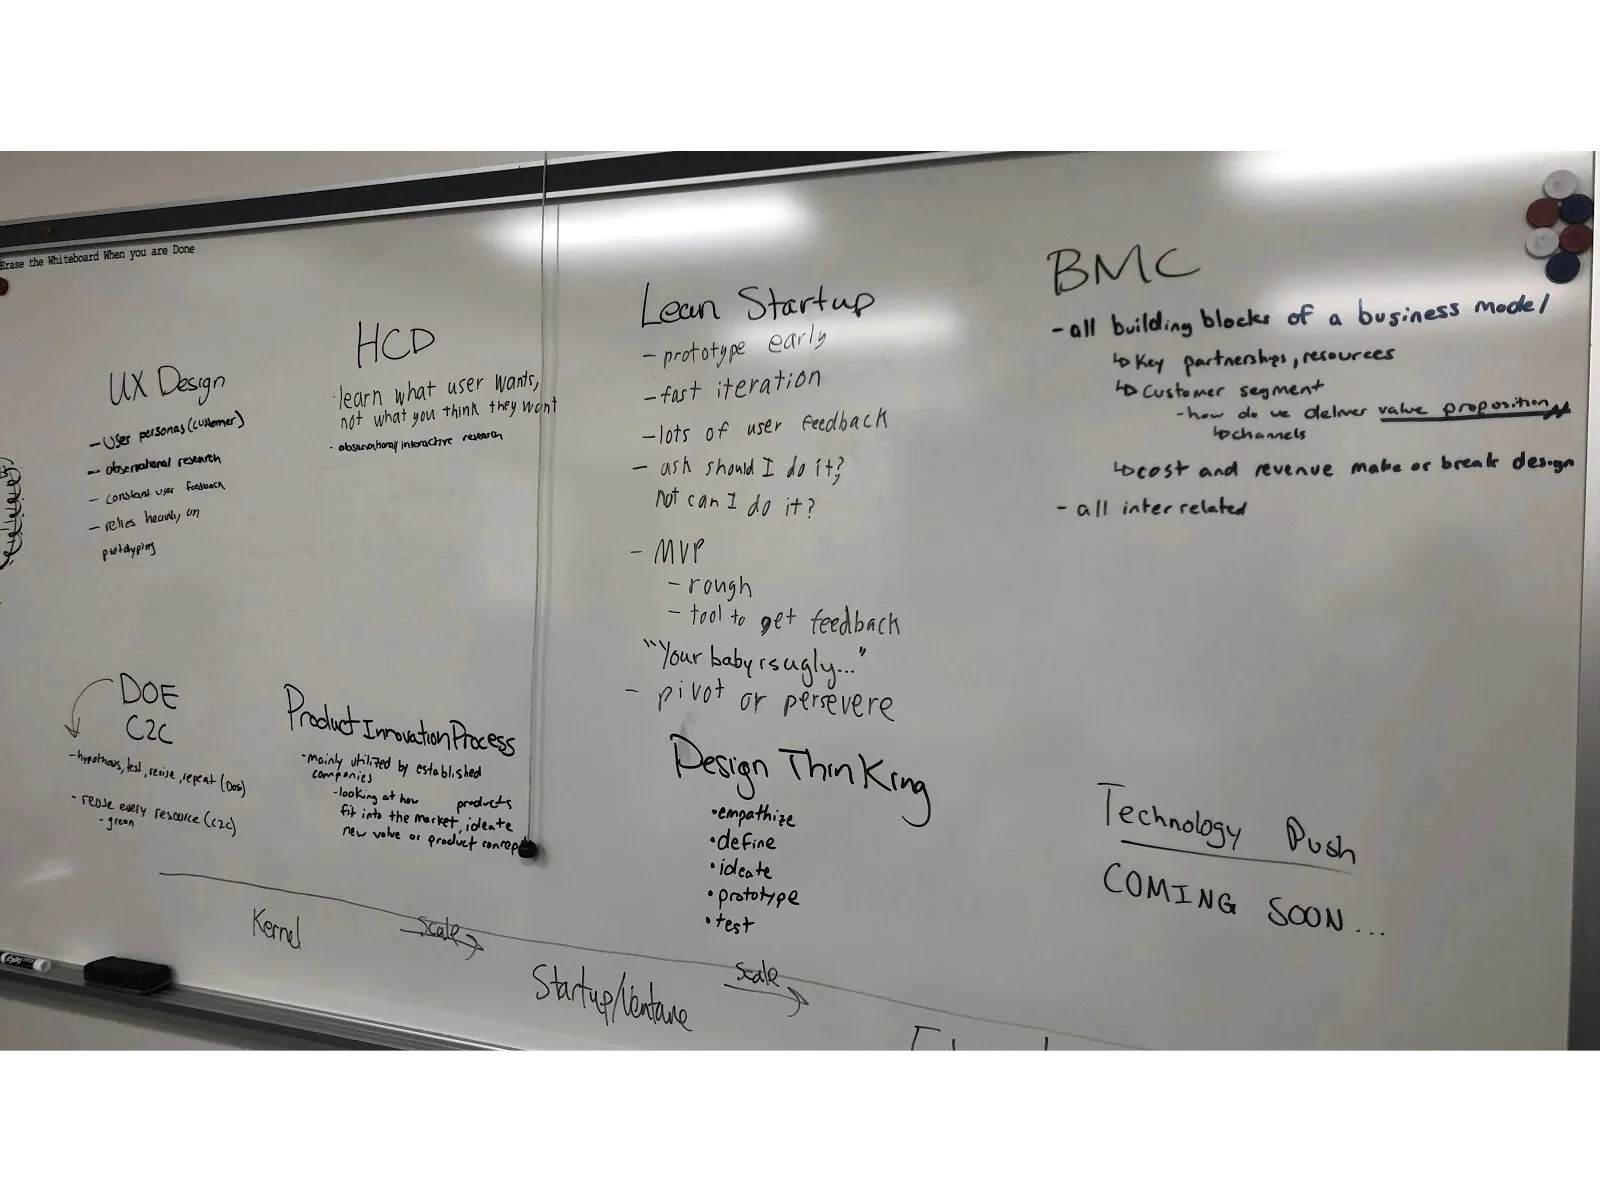 Erase the Whiteboard When you are Done
UX Design
- User personas (customer)
- observational research
- constant user feedback
- relies heavily on
prototyping
HCD
· learn what user wants,
not what you think they want
- observational/interactive research
Lean Startup
- prototype early
- fast iteration
- lots of user feedback
- ask should I do it?
not can I do it?
- MVP
- rough
- tool to get feedback
"Your baby is ugly..."
- pivot or persevere
BMC
- all building blocks of a business model
↳ Key partnerships, resources
↳ Customer segment
- how do we deliver value proposition
↳ channels
↳ cost and revenue make or break design
- all interrelated
DOE
C2C
- hypothesis, test, revise, repeat (DOE)
- reuse every resource (C2C)
- green
Product Innovation Process
- mainly utilized by established
companies
- looking at how products
fit into the market, ideate
new value or product concept
Design Thinking
• empathize
• define
• ideate
• prototype
• test
Technology Push
COMING SOON...
Kernel
Scale
Startup/Venture
Scale
EXPO